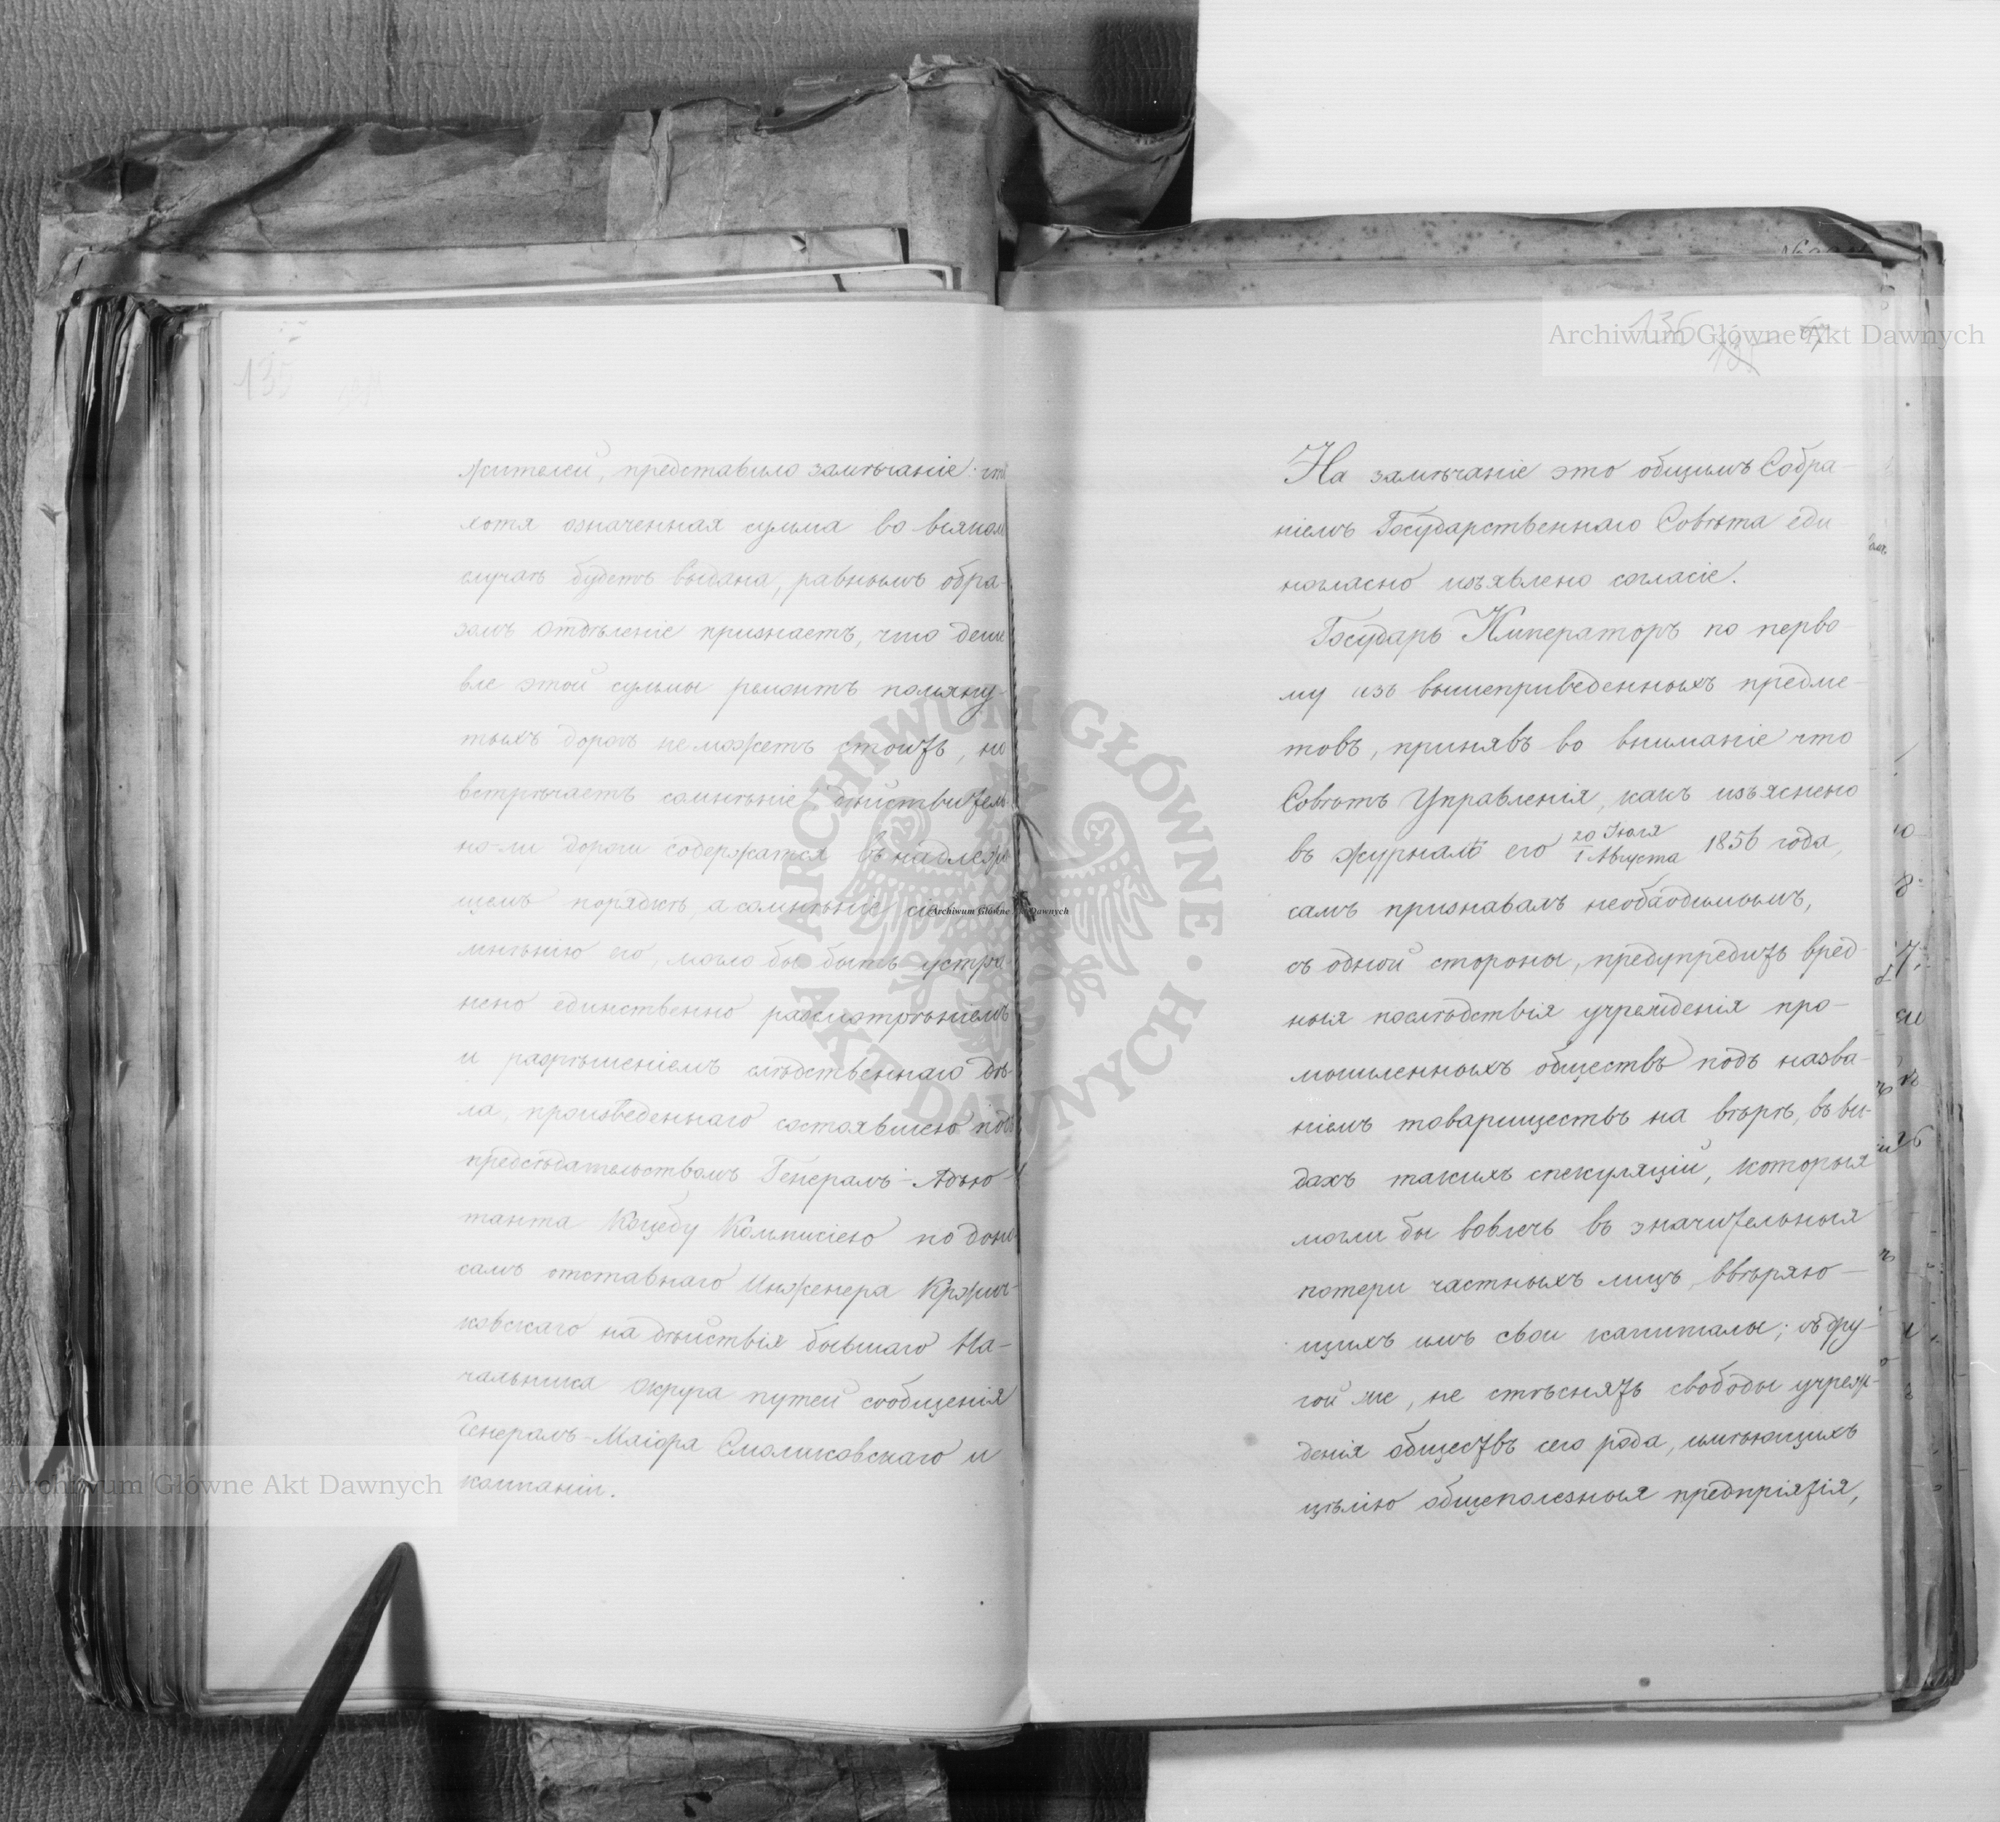 135
жителей, представило замѣчаніе: что
хотя означенная сумма во всяком
случаѣ будетъ выдана, равнымъ обра-
зомъ Отдѣленіе признаетъ, что деше
вле этой суммы ремонтъ помяну-
тыхъ дорогъ не можетъ стоить, но
встрѣчаетъ сомнѣніе дѣйствитель
но-ли дороги содержатся въ надлежа
щемъ порядкѣ, а сомнѣніе сіе, по
мнѣнію его, могло бы быть устра
нено единственно разсмотрѣніемъ
и разрѣшеніемъ слѣдственнаго дѣ-
ла, произведеннаго состоявшею подъ
предсѣдательствомъ Генералъ-Адъю-
танта Коцебу Коммисіею по доно
самъ отставнаго Инженера Кржич-
ковскаго на дѣйствія бывшаго На-
чальника Округа путей сообщенія
Генералъ-Маіора Смоликовскаго и
компаніи.
136
135
67
На замѣчаніе это общимъ Собра-
ніемъ Государственнаго Совѣта еди
ногласно изъявлено согласіе.
Государь Императоръ по перво-
му изъ вышеприведенныхъ предме-
товъ, принявъ во вниманіе что
Совѣтъ Управленія, какъ изъяснено
въ журналѣ его 20 Іюля / 1 Августа 1856 года,
самъ признавалъ необходимымъ,
съ одной стороны, предупредить вред-
ныя послѣдствія учрежденія про-
мышленныхъ обществъ подъ назва-
ніемъ товариществъ на вѣрѣ, въ ви-
дахъ такихъ спекуляцій, которыя
могли бы вовлечь въ значительныя
потери частныхъ лицъ, ввѣряю-
щихъ имъ свои капиталы; съ дру-
гой же, не стѣснять свободы учреж-
денія обществъ сего рода, имѣющихъ
цѣлію общеполезныя предпріятія,
Archiwum Główne Akt Dawnych
Archiwum Główne Akt Dawnych
Archiwum Główne Akt Dawnych
ARCHIWUM GŁÓWNE AKT DAWNYCH